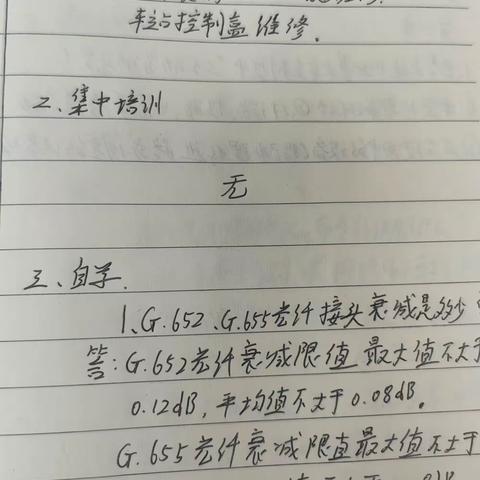 车站控制盒维修.
二、集中培训
无
三、自学.
1、G.652、G.655光纤接头衰减是多少
答:G.652光纤衰减限值 最大值不大于
0.12dB,平均值不大于0.08dB。
G.655光纤衰减限值最大值不大于